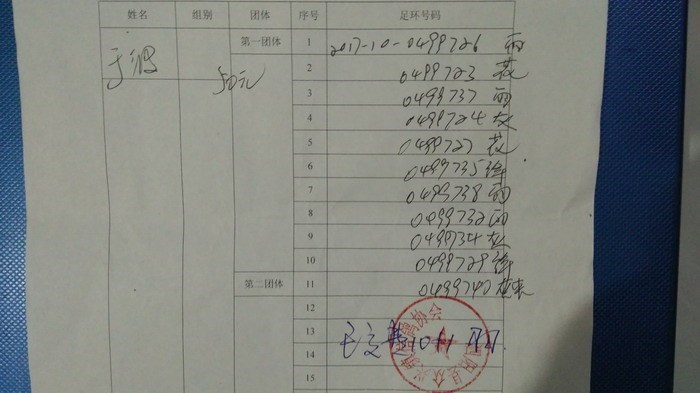 姓名 组别 团体 序号 足环号码
于波 第一团体 1 2017-10-0499726 雨
50元 2 0499723 花
3 0499737 雨
4 0499724 灰
5 0499727 花
6 0499735 绛
7 0499738 雨
8 0499732 雨
9 0499734 灰
10 0499729 绛
第二团体 11 0499740
12
13
14
15